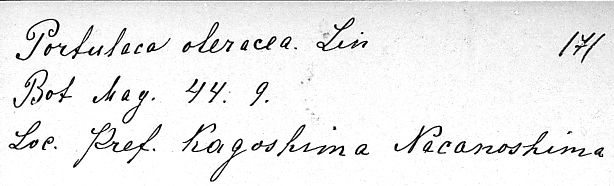 Portulaca oleracea. Lin 171
Bot Mag. 44. 9.
Loc. Pref. Kagoshima Nacanoshima